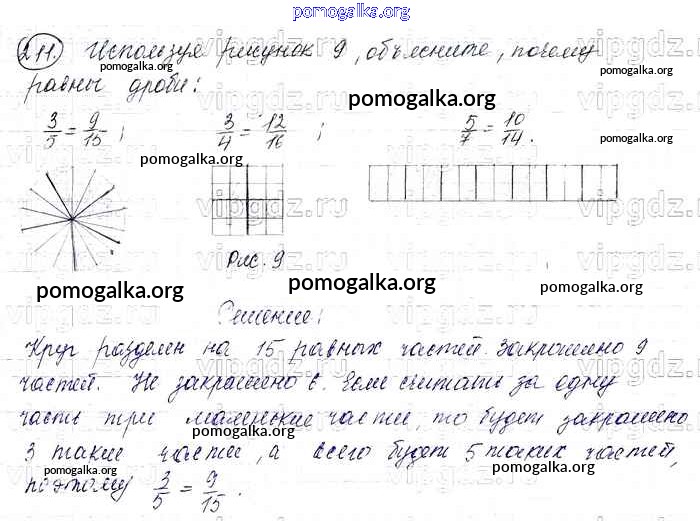 pomogalka.org
211. Используя рисунок 9, объясните, почему
равны дроби:
pomogalka.org
3/5 = 9/15; 3/4 = 12/16; 5/7 = 10/14.
pomogalka.org
pomogalka.org
pomogalka.org
vipgdz.ru
vipgdz.ru
Рис. 9
pomogalka.org
pomogalka.org
pomogalka.org
Решение:
Круг разделен на 15 равных частей. Закрашено 9
частей. Не закрашено 6. Если считать за одну
часть три маленькие части, то будет закрашено
pomogalka.org
3 такие части, а всего будет 5 таких частей,
pomogalka.org
pomogalka.org
поэтому 3/5 = 9/15.